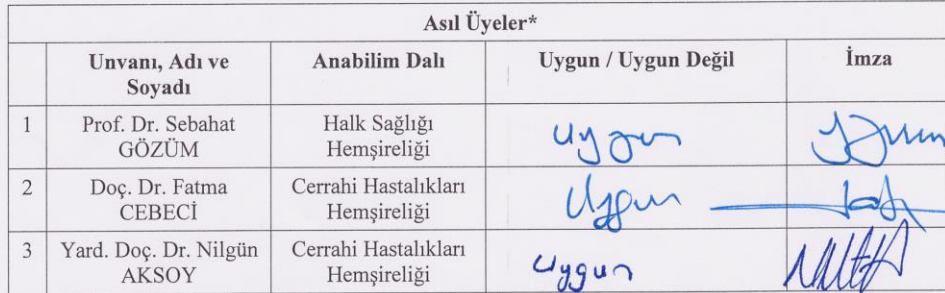 Asıl Üyeler*
Unvanı, Adı ve Soyadı Anabilim Dalı Uygun / Uygun Değil İmza
1 Prof. Dr. Sebahat GÖZÜM Halk Sağlığı Hemşireliği Uygun
2 Doç. Dr. Fatma CEBECİ Cerrahi Hastalıkları Hemşireliği Uygun
3 Yard. Doç. Dr. Nilgün AKSOY Cerrahi Hastalıkları Hemşireliği Uygun